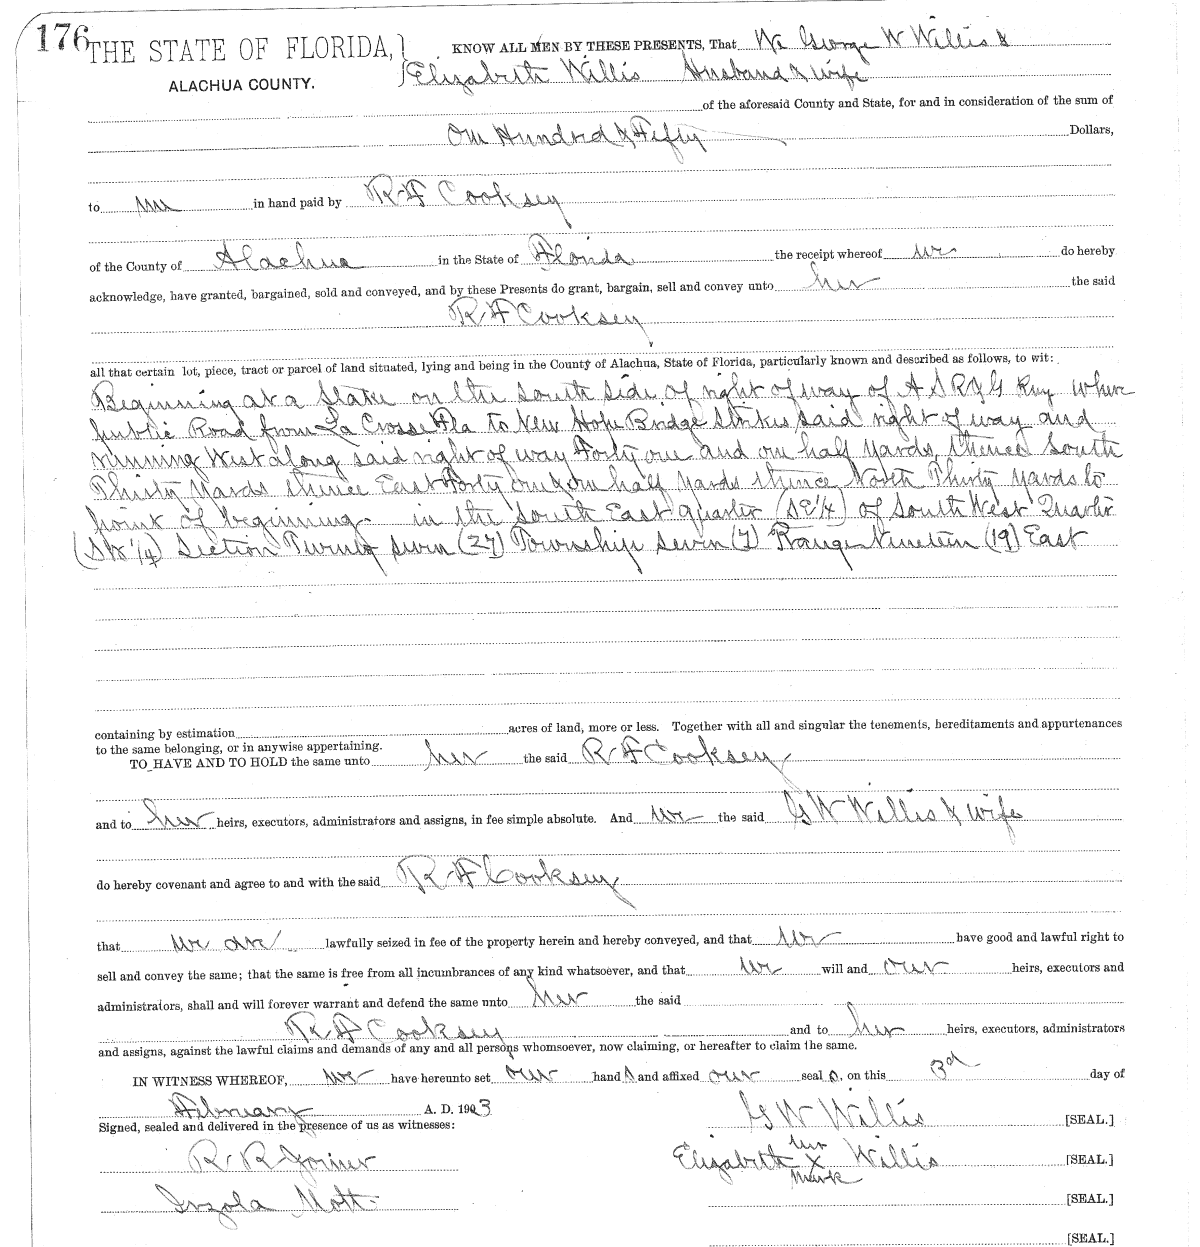 176
THE STATE OF FLORIDA,} KNOW ALL MEN BY THESE PRESENTS, That We George W Willis &
ALACHUA COUNTY. Elizabeth Willis Husband & wife
of the aforesaid County and State, for and in consideration of the sum of
One Hundred & Fifty Dollars,
to in hand paid by R F Cooksey
of the County of Alachua in the State of Florida the receipt whereof we do hereby
acknowledge, have granted, bargained, sold and conveyed, and by these Presents do grant, bargain, sell and convey unto her the said
R F Cooksey
all that certain lot, piece, tract or parcel of land situated, lying and being in the County of Alachua, State of Florida, particularly known and described as follows, to wit:
Beginning at a Stake on the south side of right of way of A S R & G Rwy where
public Road from La Crosse Fla to New Hope Bridge Strikes said right of way and
running West along said right of way Forty one and one half yards, thence South
Thirty yards thence East Forty one & one half yards thence North Thirty yards to
point of beginning. in the South East quarter (SE 1/4) of South West Quarter
(SW 1/4) Section Twenty seven (27) Township seven (7) Range Nineteen (19) East
containing by estimation acres of land, more or less. Together with all and singular the tenements, hereditaments and appurtenances
to the same belonging, or in anywise appertaining.
TO HAVE AND TO HOLD the same unto her the said R F Cooksey
and to her heirs, executors, administrators and assigns, in fee simple absolute. And we the said G W Willis & wife
do hereby covenant and agree to and with the said R F Cooksey
that we are lawfully seized in fee of the property herein and hereby conveyed, and that we have good and lawful right to
sell and convey the same; that the same is free from all incumbrances of any kind whatsoever, and that we will and our heirs, executors and
administrators, shall and will forever warrant and defend the same unto her the said
R F Cooksey and to her heirs, executors, administrators
and assigns, against the lawful claims and demands of any and all persons whomsoever, now claiming, or hereafter to claim the same.
IN WITNESS WHEREOF, we have hereunto set our hands and affixed our seals, on this 3rd day of
February A. D. 1903
Signed, sealed and delivered in the presence of us as witnesses: G W Willis [SEAL.]
R. R. Joiner Elizabeth her X mark Willis [SEAL.]
Inzola Mott [SEAL.]
[SEAL.]